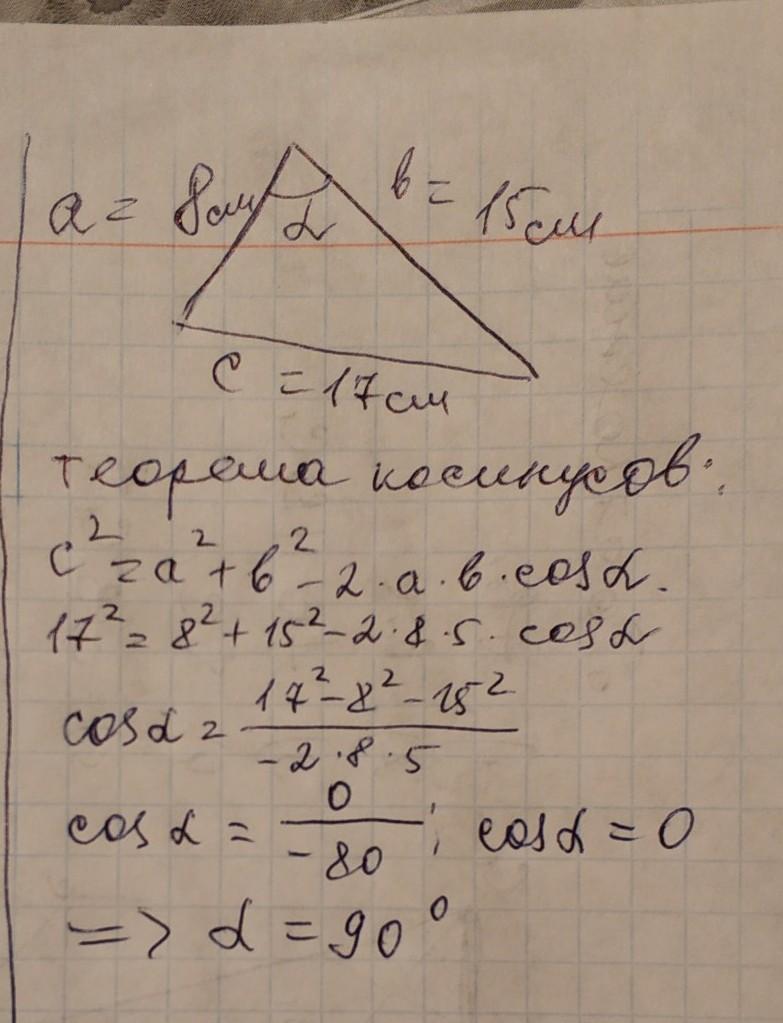 a = 8см α b = 15см
c = 17см
теорема косинусов:
c² = a² + b² - 2 · a · b · cos α.
17² = 8² + 15² - 2 · 8 · 5 · cos α
cos α = (17² - 8² - 15²) / (-2 · 8 · 5)
cos α = 0 / (-80) ; cos α = 0
=> α = 90°